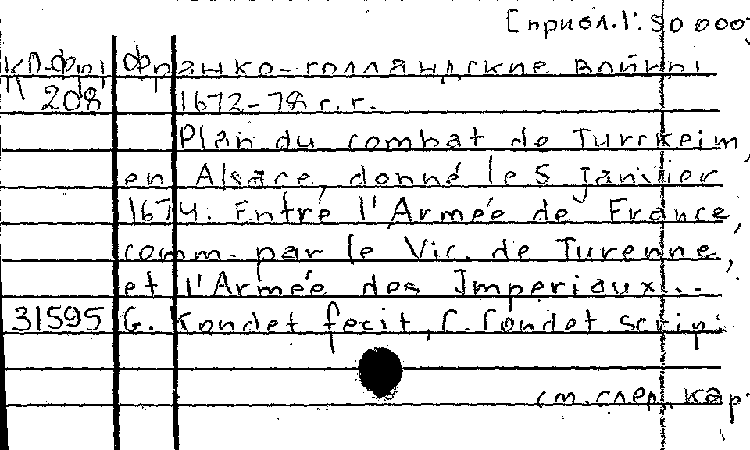 [прибл. 1:50 000]
КП.фр. Франко-голландские войны
208 1672-78 г.г.
Plan du combat de Turckeim,
en Alsace, donné le 5 Janvier
1674. Entre l'Armée de France,
comm. par le Vic. de Turenne,
et l'Armée des Imperiaux...
31595 G. Kondet fecit, C. Condet scrip.
см. след. кар.